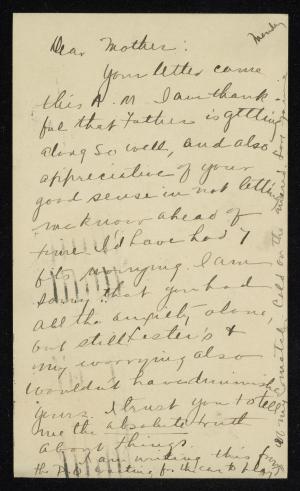 Monday
Dear Mother:
Your letter came
this A.M. I am thank-
ful that Father is getting
along so well, and also
appreciative of your
good sense in not letting
me know ahead of
time. I'd have had 7
fits worrying. I am
sorry that you had
all the anxiety alone,
but still Lester's &
my worrying also
wouldn't have diminished
yours. I trust you to tell
me the absolute truth
about things.
I am writing this from
the P.O. waiting for the car to
Cold on the mend